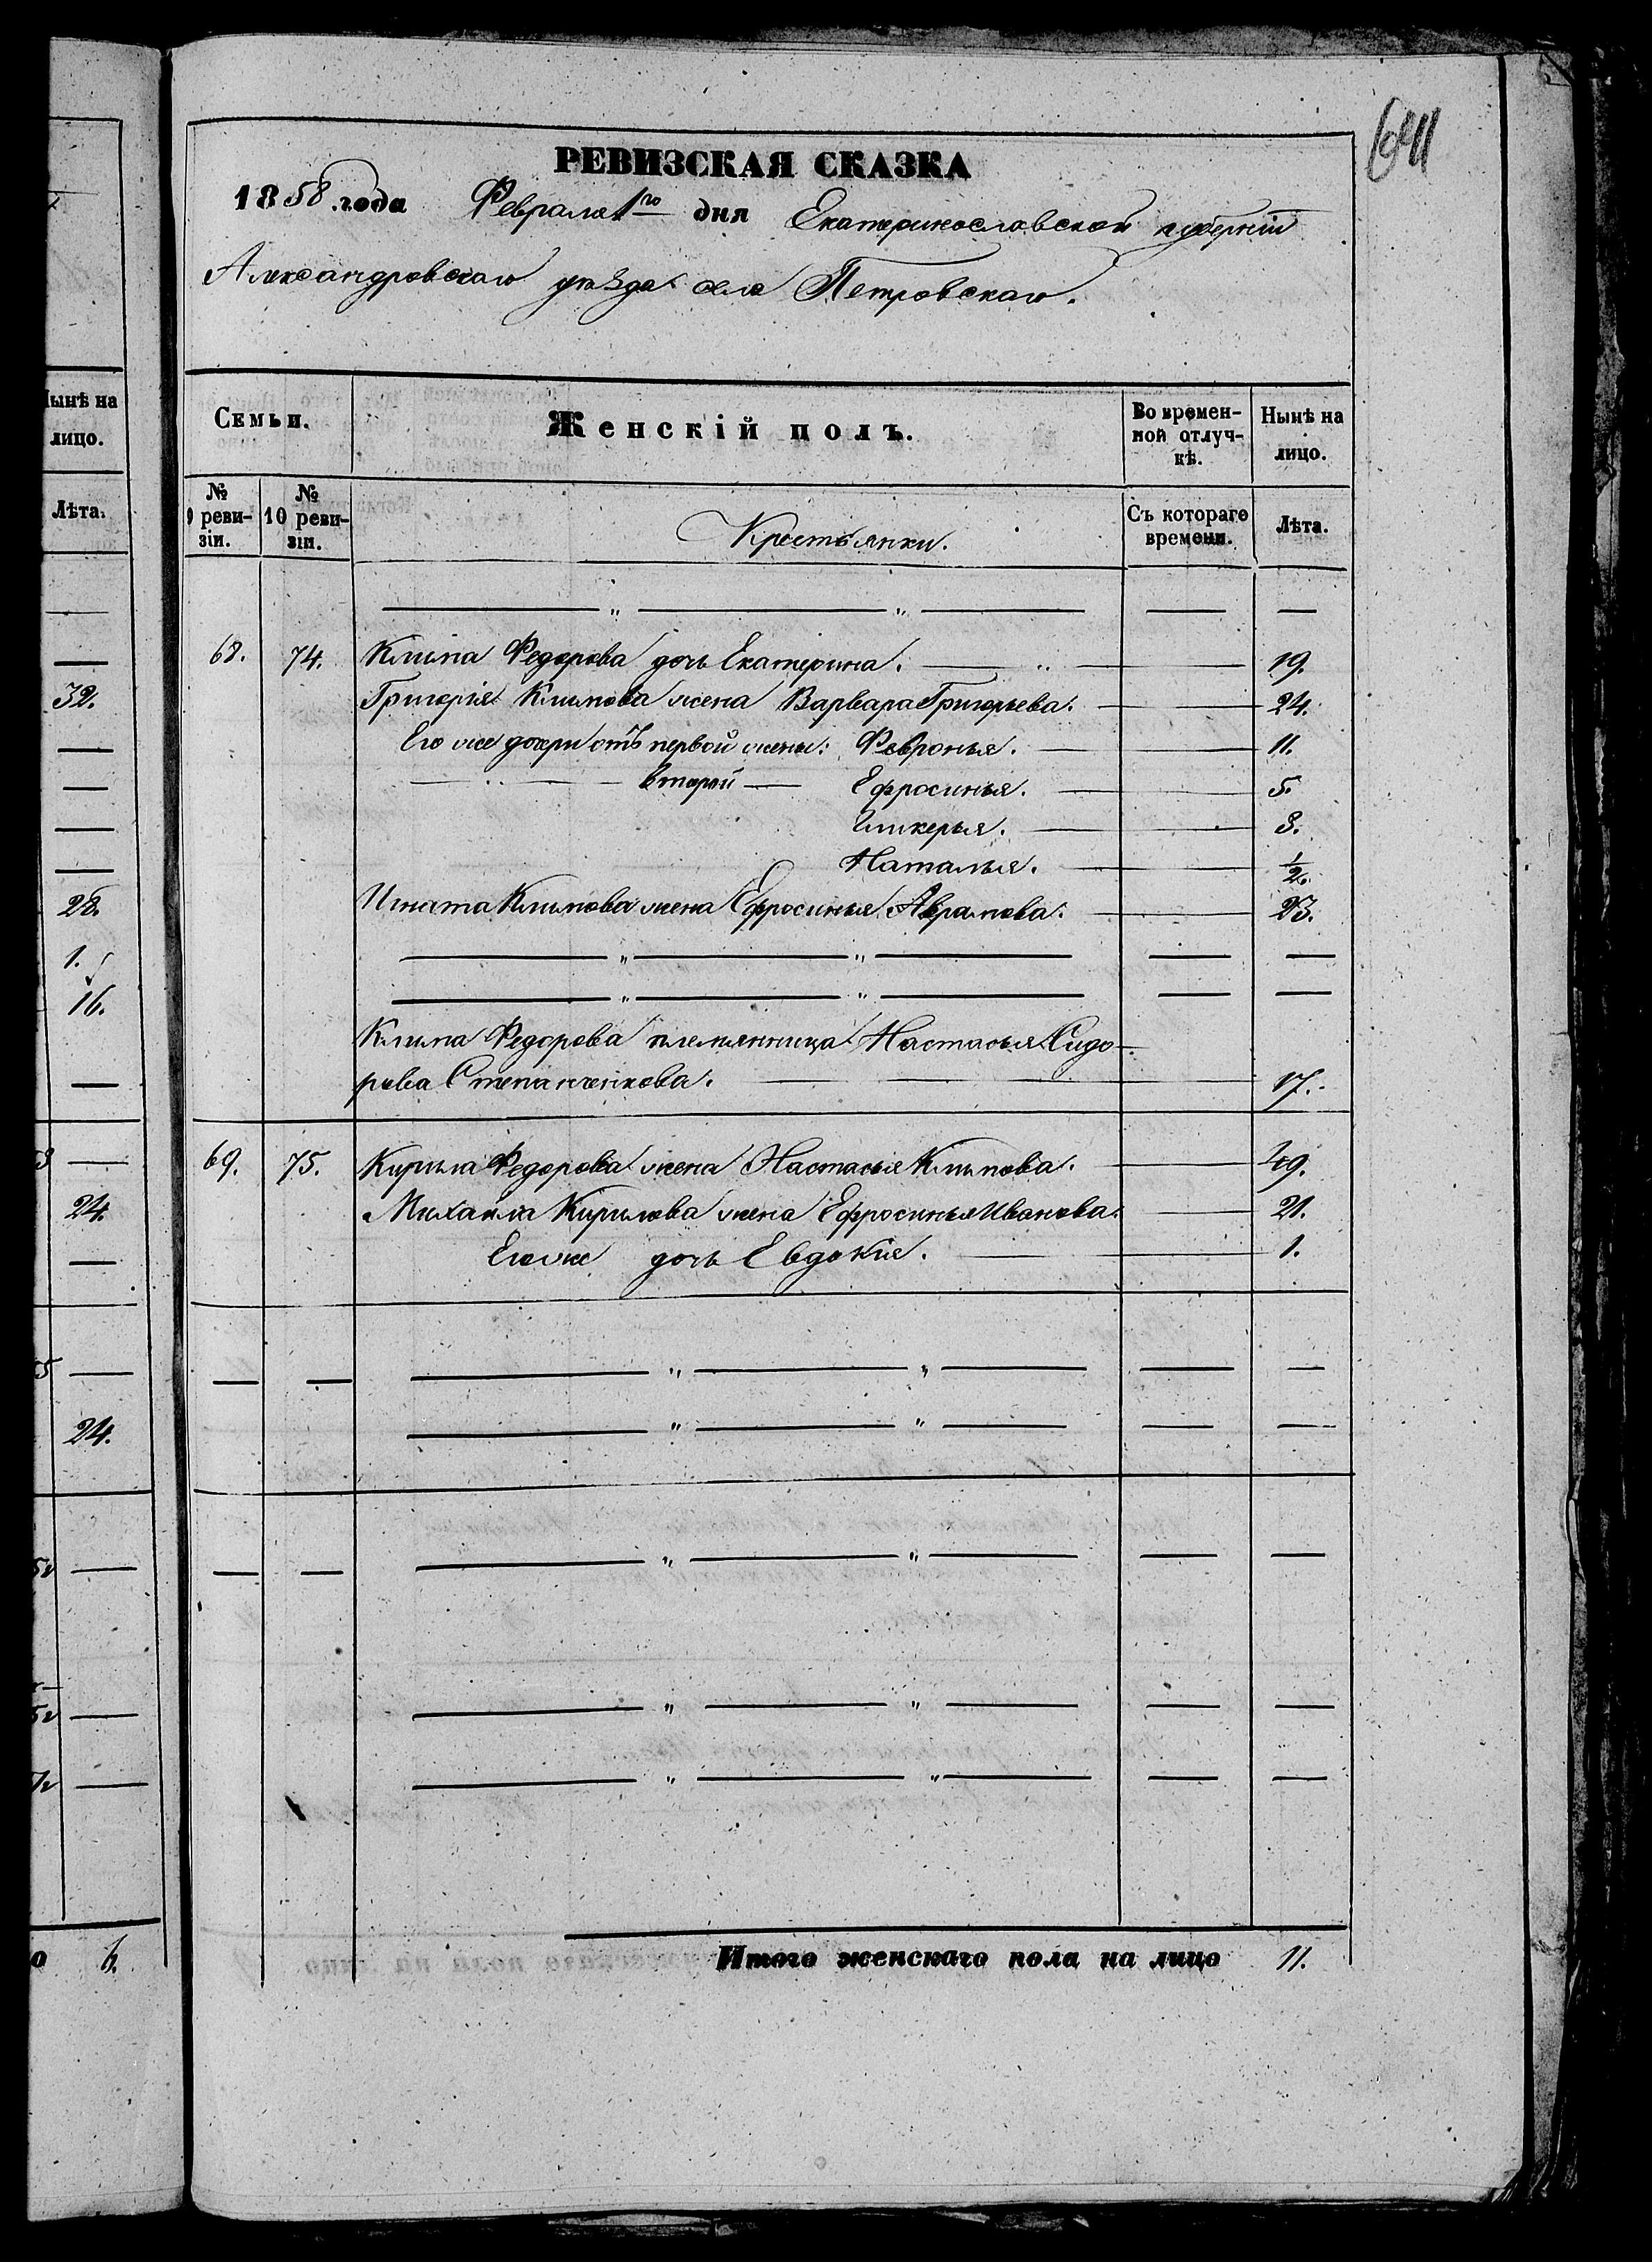 641
РЕВИЗСКАЯ СКАЗКА
1858 года Февраля 1го дня Екатеринославской губерніи
Александровскаго уѣзда села Петровскаго.
ынѣ на
лицо.
Лѣта.
32.
28.
1.
16.
24.
24.
6.
Семьи.
Женскій полъ.
Во времен-
ной отлуч-
кѣ.
Нынѣ на
лицо.
№
9 реви-
зіи.
№
10 реви-
зіи.
Крестьянки.
Съ котораго
времени.
Лѣта.
68. 74. Клима Федорова дочь Екатерина. 19.
Григорія Климова жена Варвара Григорьева. 24.
Его же дочери отъ первой жены: Февронья. 11.
второй Ефросинья. 5.
Гликерья. 3.
Наталья. 1/2.
Игната Климова жена Ефросинья Аврамова. 23.
Клима Федорова племянница Настасья Сидо-
рова Степанченкова. 17.
69. 75. Кирила Федорова жена Настасья Климова. 49.
Михаила Кирилова жена Ефросинья Иванова. 21.
Его же дочь Евдокія. 1.
Итого женскаго пола на лицо 11.